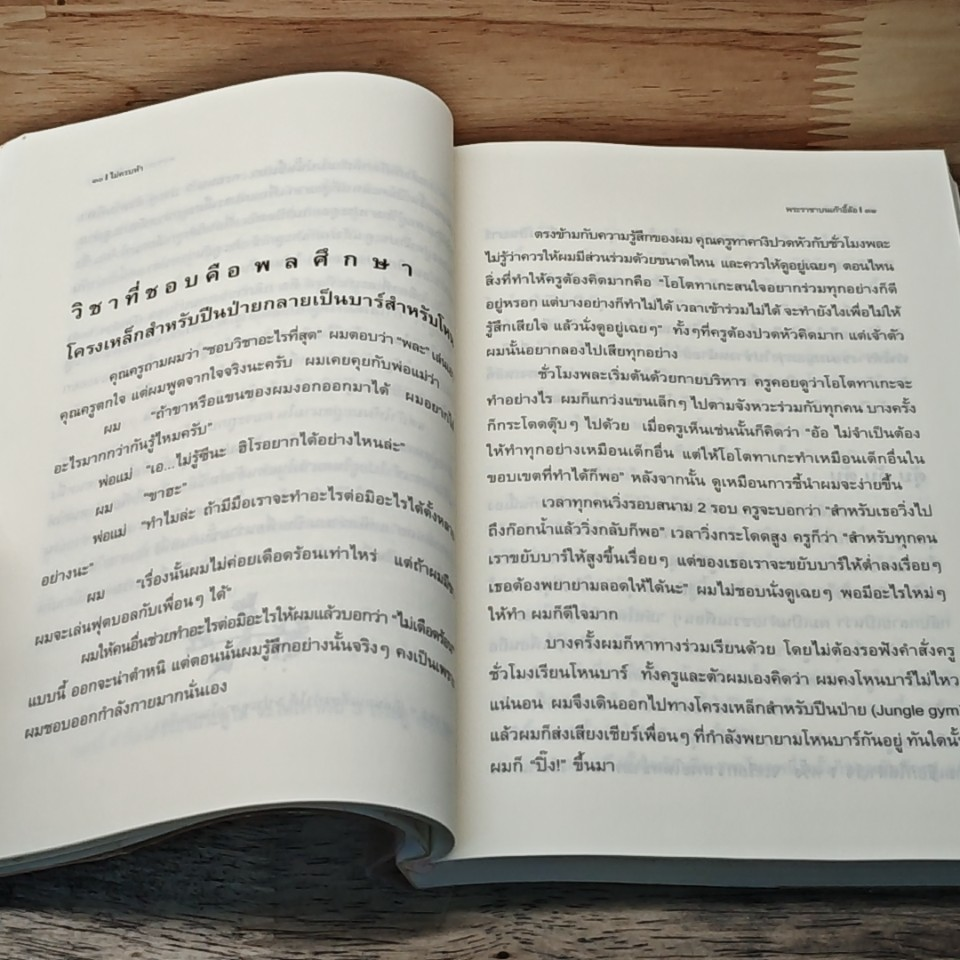 ๓๐ | ไม่ครบห้า
วิชาที่ชอบคือพลศึกษา
โครงเหล็กสำหรับปีนป่ายกลายเป็นบาร์สำหรับ
คุณครูถามผมว่า “ชอบวิชาอะไรที่สุด” ผมตอบว่า “พละ”
คุณครูตกใจ แต่ผมพูดจากใจจริงนะครับ ผมเคยคุยกับพ่อแม่ว่า
ผม “ถ้าขาหรือแขนของผมงอกออกมาได้ ผมอยากได้
อะไรมากกว่ากันรู้ไหมครับ”
พ่อแม่ “เอ...ไม่รู้ซีนะ ฮิโรอยากได้อย่างไหนล่ะ”
ผม “ขาฮะ”
พ่อแม่ “ทำไมล่ะ ถ้ามีมือเราจะทำอะไรต่อมิอะไรได้ตั้งหลาย
อย่างนะ”
ผม “เรื่องนั้นผมไม่ค่อยเดือดร้อนเท่าไหร่ แต่ถ้าผมมีขา
ผมจะเล่นฟุตบอลกับเพื่อนๆ ได้”
ผมให้คนอื่นช่วยทำอะไรต่อมิอะไรให้ผมแล้วบอกว่า “ไม่เดือดร้อน”
แบบนี้ ออกจะน่าตำหนิ แต่ตอนนั้นผมรู้สึกอย่างนั้นจริงๆ คงเป็นเพราะ
ผมชอบออกกำลังกายมากนั่นเอง
พระราชาบนเก้าอี้ล้อ | ๓๑
ตรงข้ามกับความรู้สึกของผม คุณครูทาคางิปวดหัวกับชั่วโมงพละ
ไม่รู้ว่าควรให้ผมมีส่วนร่วมด้วยขนาดไหน และควรให้ดูอยู่เฉยๆ ตอนไหน
สิ่งที่ทำให้ครูต้องคิดมากคือ “โอโตทาเกะสนใจอยากร่วมทุกอย่างก็ดี
อยู่หรอก แต่บางอย่างก็ทำไม่ได้ เวลาเข้าร่วมไม่ได้ จะทำยังไงเพื่อไม่ให้
รู้สึกเสียใจ แล้วนั่งดูอยู่เฉยๆ” ทั้งๆที่ครูต้องปวดหัวคิดมาก แต่เจ้าตัว
ผมนั้นอยากลองไปเสียทุกอย่าง
ชั่วโมงพละเริ่มต้นด้วยกายบริหาร ครูคอยดูว่าโอโตทาเกะจะ
ทำอย่างไร ผมก็แกว่งแขนเล็กๆ ไปตามจังหวะร่วมกับทุกคน บางครั้ง
ก็กระโดดตุ๊บๆ ไปด้วย เมื่อครูเห็นเช่นนั้นก็คิดว่า “อ้อ ไม่จำเป็นต้อง
ให้ทำทุกอย่างเหมือนเด็กอื่น แต่ให้โอโตทาเกะทำเหมือนเด็กอื่นใน
ขอบเขตที่ทำได้ก็พอ” หลังจากนั้น ดูเหมือนการชี้นำผมจะง่ายขึ้น
เวลาทุกคนวิ่งรอบสนาม 2 รอบ ครูจะบอกว่า “สำหรับเธอวิ่งไป
ถึงก๊อกน้ำแล้ววิ่งกลับก็พอ” เวลาวิ่งกระโดดสูง ครูก็ว่า “สำหรับทุกคน
เราขยับบาร์ให้สูงขึ้นเรื่อยๆ แต่ของเธอเราจะขยับบาร์ให้ต่ำลงเรื่อยๆ
เธอต้องพยายามลอดให้ได้นะ” ผมไม่ชอบนั่งดูเฉยๆ พอมีอะไรใหม่ๆ
ให้ทำ ผมก็ดีใจมาก
บางครั้งผมก็หาทางร่วมเรียนด้วย โดยไม่ต้องรอฟังคำสั่งครู
ชั่วโมงเรียนโหนบาร์ ทั้งครูและตัวผมเองคิดว่า ผมคงโหนบาร์ไม่ไหว
แน่นอน ผมจึงเดินออกไปทางโครงเหล็กสำหรับปีนป่าย (Jungle gym)
แล้วผมก็ส่งเสียงเชียร์เพื่อนๆ ที่กำลังพยายามโหนบาร์กันอยู่ ทันใดนั้น
ผมก็ “ปิ๊ง!” ขึ้นมา